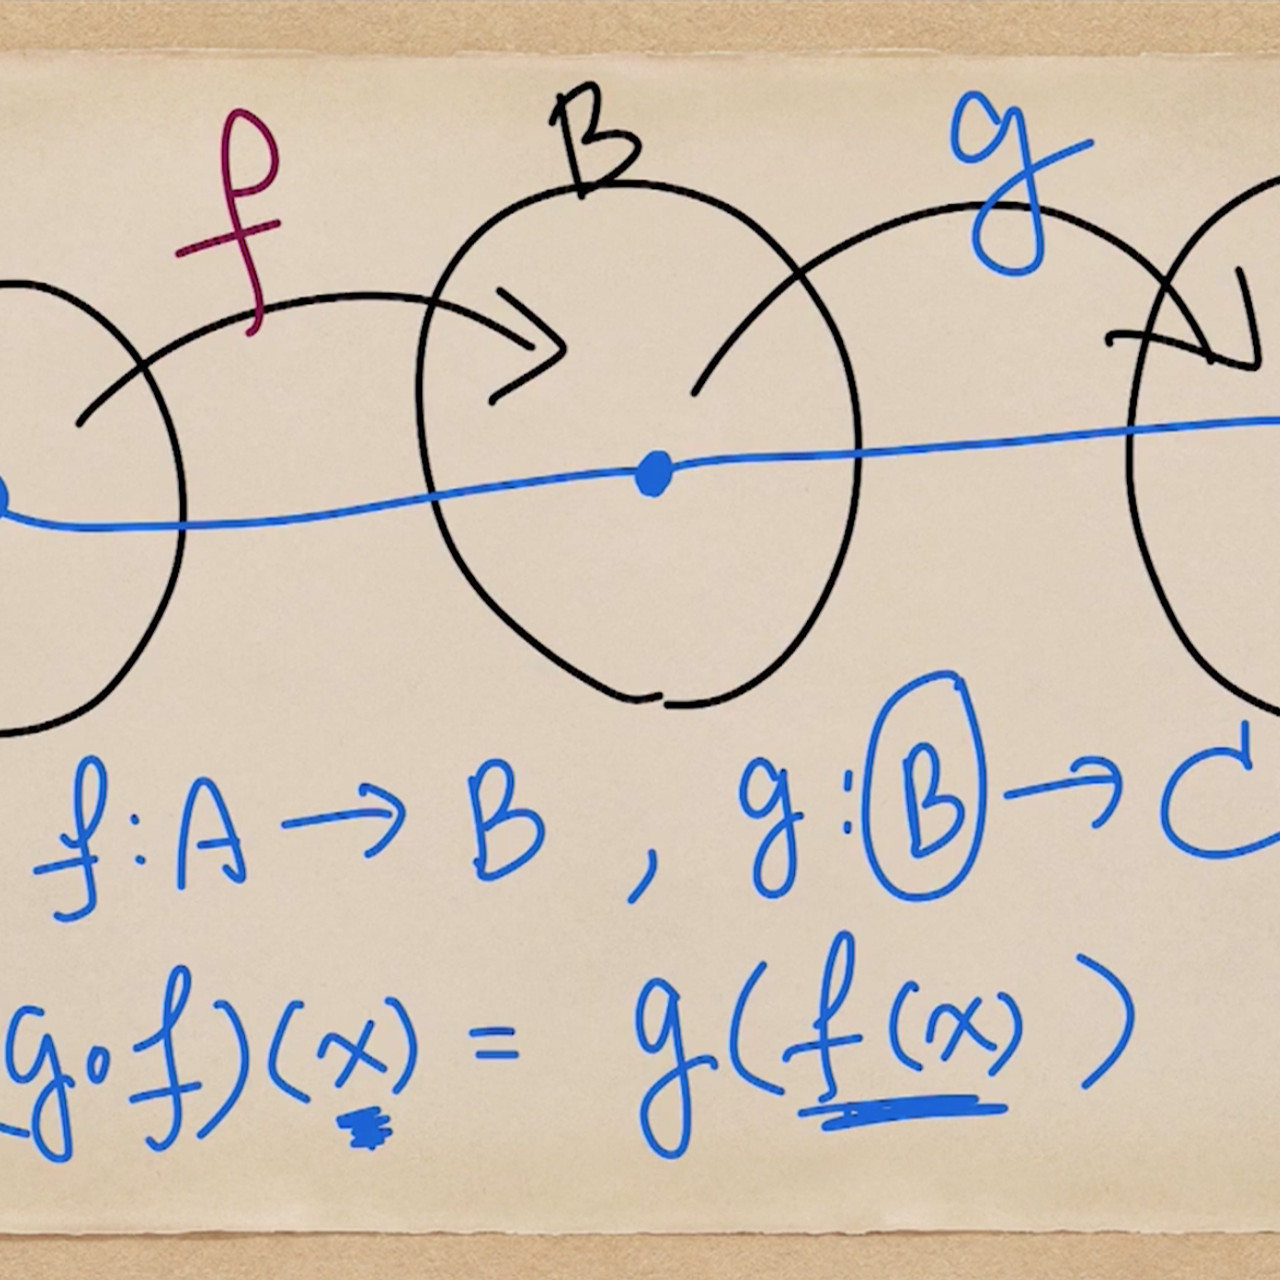 f B g
f : A → B , g : B → C
(g∘f)(x) = g(f(x))